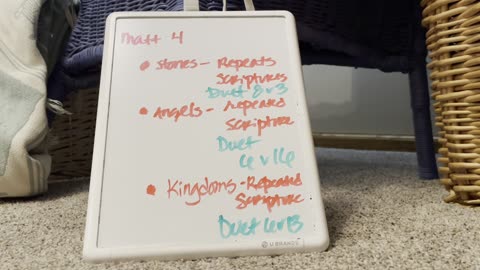 Matt 4
• Stones - Repeats
Scriptures
Duet 8 v 3
• Angels - repeated
Scripture
Duet
6 v 16
• Kingdoms - Repeated
Scripture
Duet 6 v 13
U BRANDS